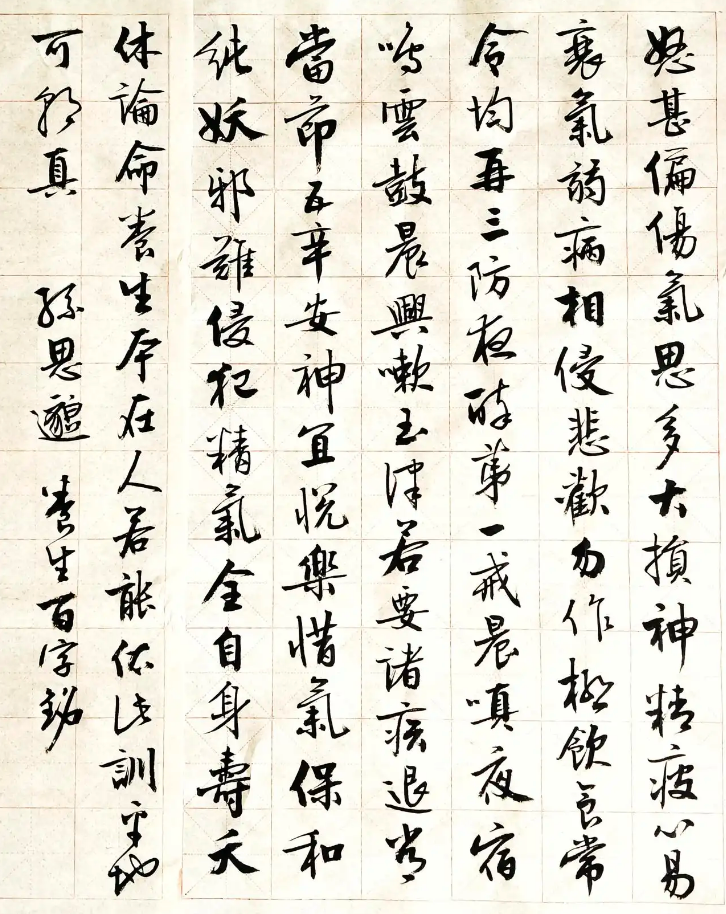 怒甚偏傷氣思多大損神精疲心易
衰氣弱病相侵悲歡勿作極飲食常
令均再三防夜醉第一戒晨嗔夜宿
鳴雲鼓晨興嗽玉津若要諸疾退常
當節五辛安神宜悅樂惜氣保和
純妖邪難侵犯精氣全自身壽夭
休論命養生本在人若能依此訓平地
可朝真 孫思邈 養生百字銘